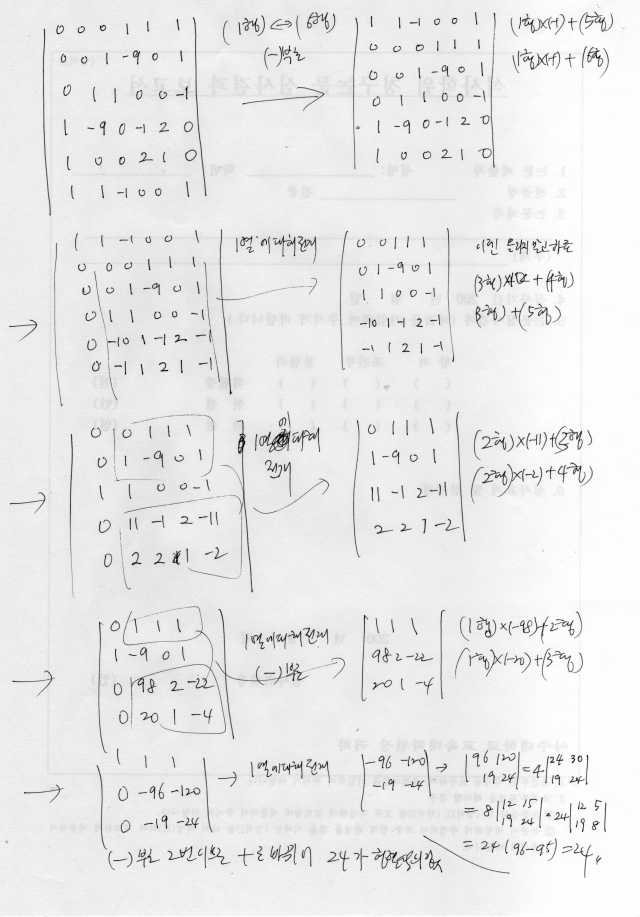 0 0 0 1 1 1
0 0 1 -9 0 1
0 1 1 0 0 -1
1 -9 0 -1 2 0
1 0 0 2 1 0
1 1 -1 0 0 1
(1행) ⟷ (6행)
(-)부호
1 1 -1 0 0 1
0 0 0 1 1 1
0 0 1 -9 0 1
0 1 1 0 0 -1
1 -9 0 -1 2 0
1 0 0 2 1 0
(1행)×(-1) + (5행)
(1행)×(-1) + (6행)
→
1 1 -1 0 0 1
0 0 0 1 1 1
0 0 1 -9 0 1
0 1 1 0 0 -1
0 -10 1 -1 2 -1
0 -1 1 2 1 -1
1열에 대해 전개
0 0 1 1 1
0 1 -9 0 1
1 1 0 0 -1
-10 1 -1 2 -1
-1 1 2 1 -1
(3행) + (5행)
→
0 0 1 1 1
0 1 -9 0 1
1 1 0 0 -1
0 11 -1 2 -11
0 2 2 1 -2
1열에 대해
전개
0 1 1 1
1 -9 0 1
11 -1 2 -11
2 2 1 -2
(2행)×(-11)+(3행)
(2행)×(-2)+4행)
→
0 1 1 1
1 -9 0 1
0 98 2 -22
0 20 1 -4
1열에 대해 전개
(-)부호
1 1 1
98 2 -22
20 1 -4
(1행)×(-98)+2행)
(1행)×(-20)+(3행)
→
1 1 1
0 -96 -120
0 -19 -24
→ 1열에 대해 전개
-96 -120
-19 -24
→
96 120
19 24
= 4
24 30
19 24
= 8
12 15
19 24
= 24
12 5
19 8
= 24(96-95) = 24
(-)부호 2번이므로 +로 바뀌어 24가